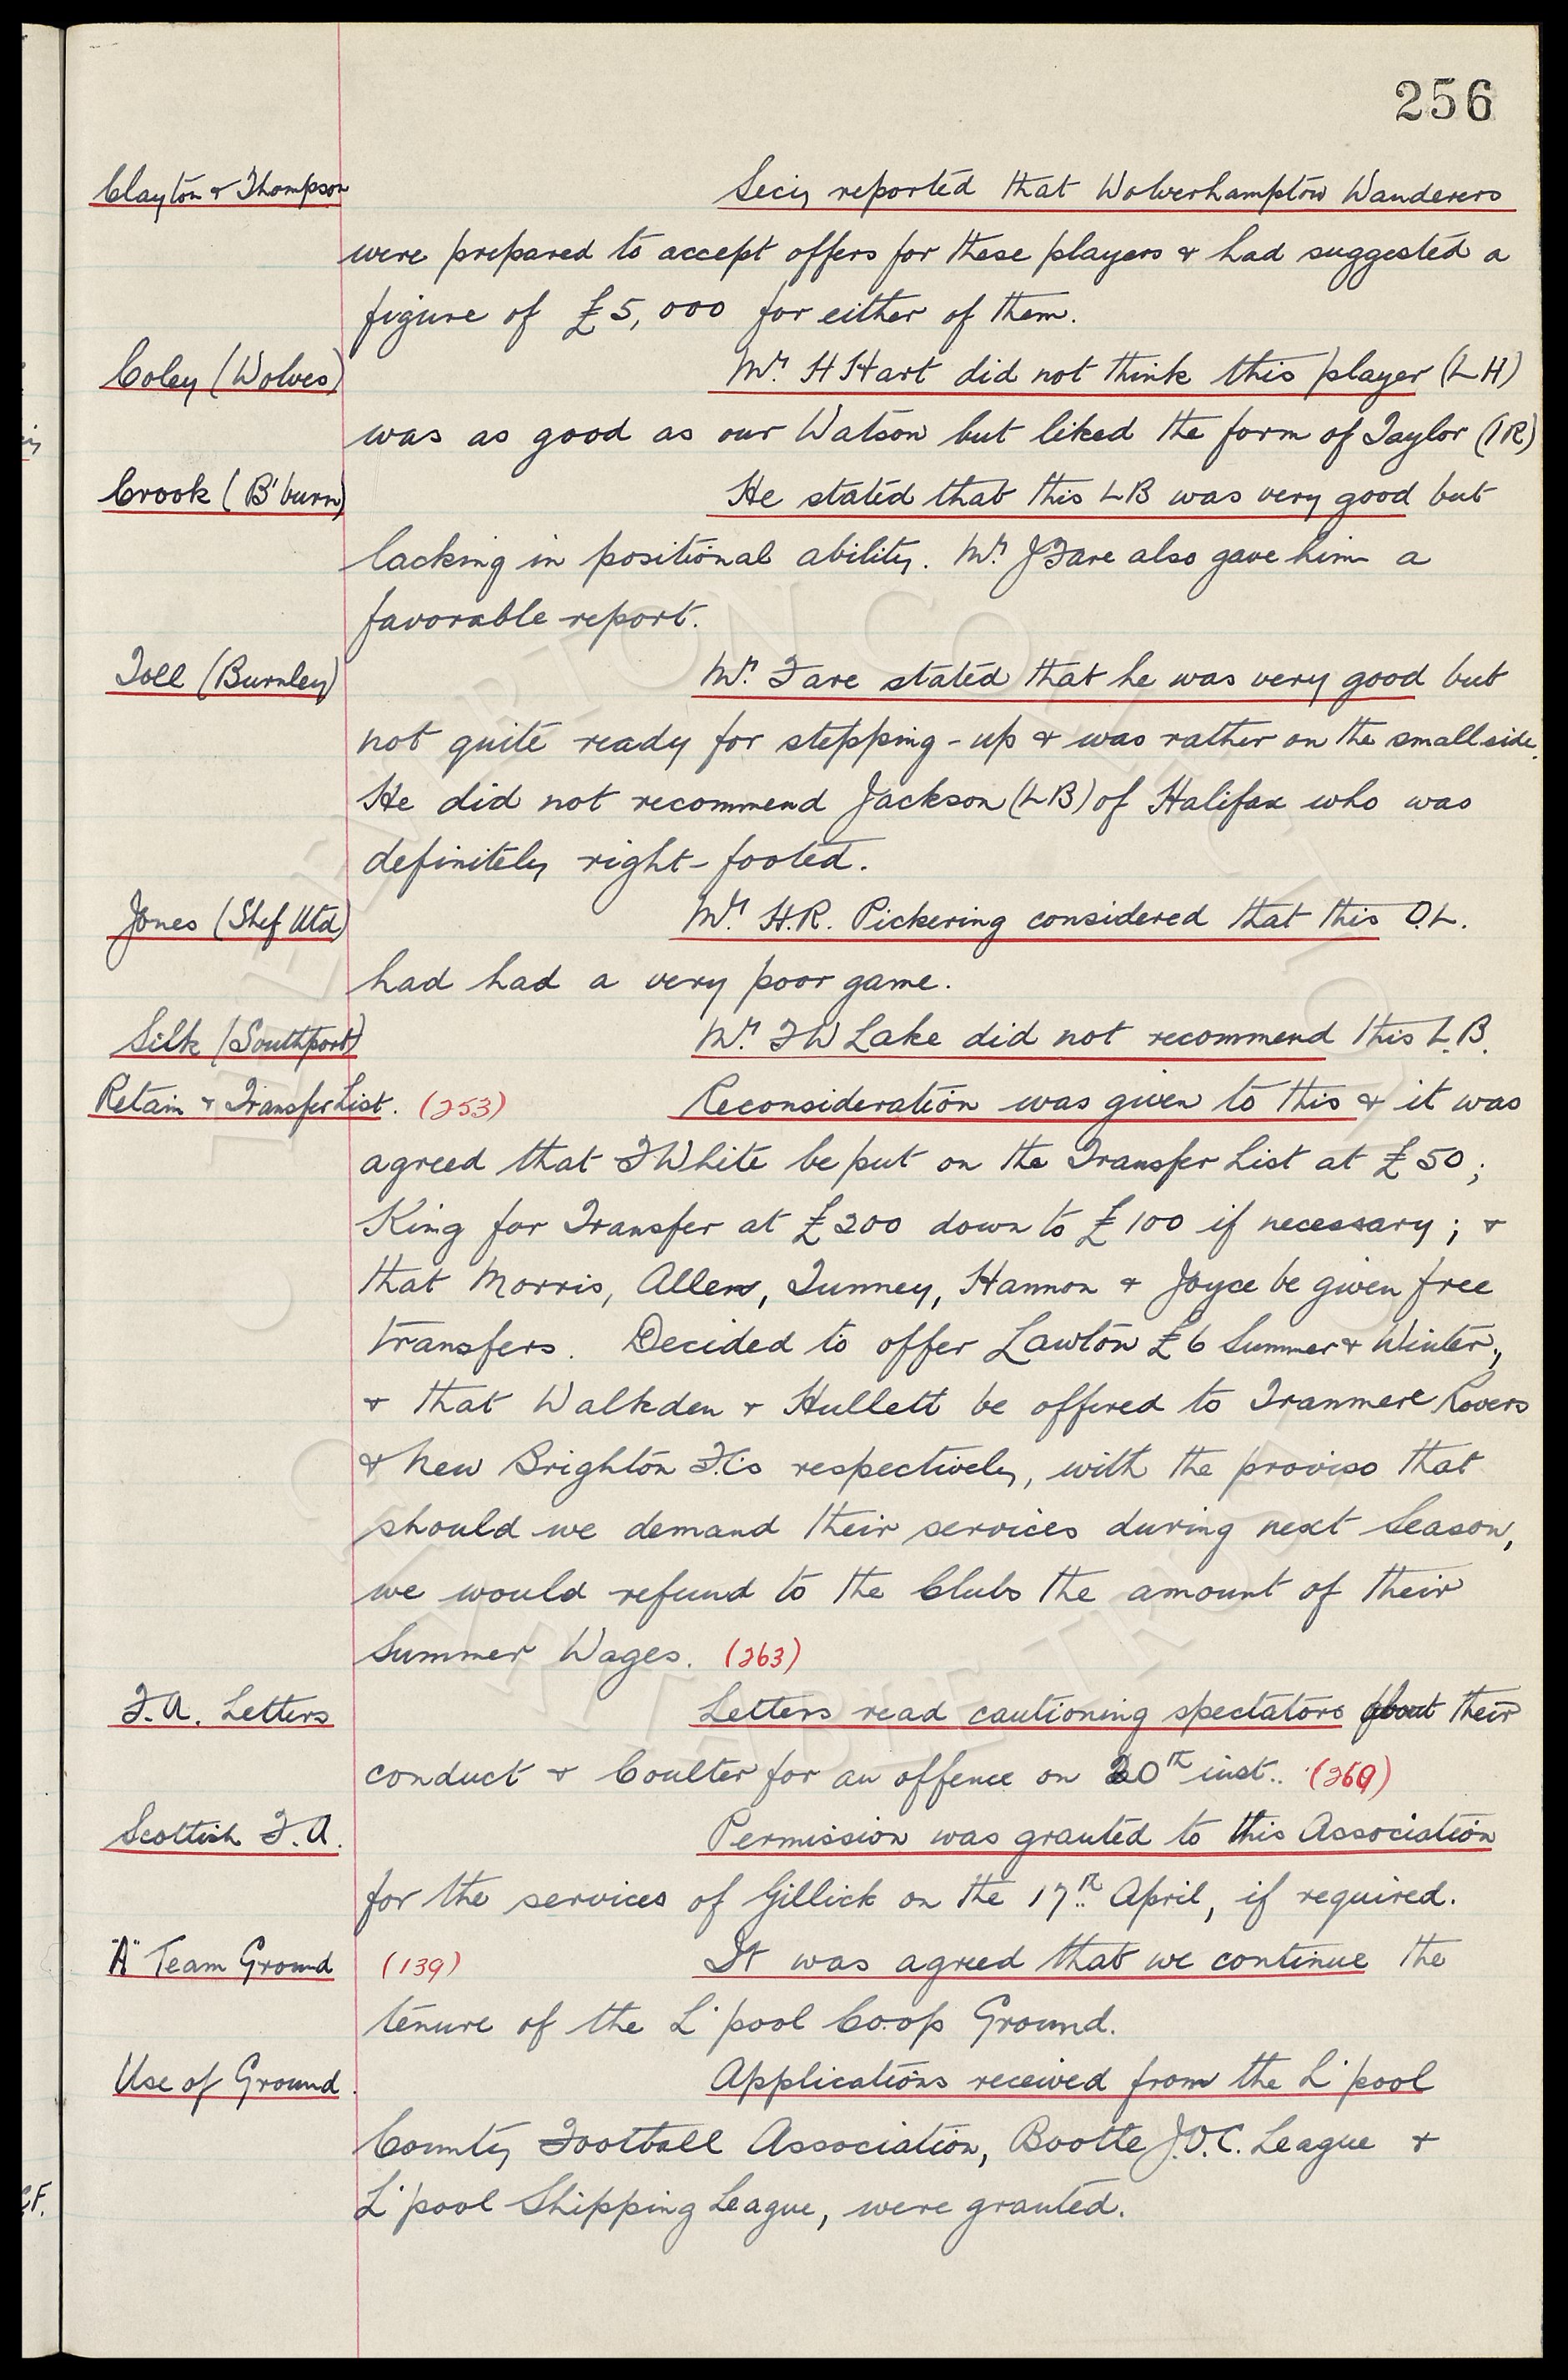 256
Clayton & Thompson Secy reported that Wolverhampton Wanderers
were prepared to accept offers for these players & had suggested a
figure of £5,000 for either of them.
Coley (Wolves) Mr. H Hart did not think this player (LH)
was as good as our Watson but liked the form of Taylor (IR)
Crook (B'burn) He stated that this LB was very good but
lacking in positional ability. Mr. J Fare also gave him a
favorable report.
Toll (Burnley) Mr. Fare stated that he was very good but
not quite ready for stepping-up & was rather on the small side.
He did not recommend Jackson (LB) of Halifax who was
definitely right-footed.
Jones (Shef Utd) Mr. H.R. Pickering considered that this O.L.
had had a very poor game.
Silk (Southport) Mr. FW Lake did not recommend this L.B.
Retain & Transfer List. (253) Reconsideration was given to this & it was
agreed that T White be put on the Transfer List at £50;
King for Transfer at £200 down to £100 if necessary; &
that Morris, Allen, Tunney, Hannon & Joyce be given free
transfers. Decided to offer Lawton £6 Summer & Winter,
& that Walkden & Hullett be offered to Tranmere Rovers
& New Brighton F.C's respectively, with the proviso that
should we demand their services during next Season,
we would refund to the Clubs the amount of their
Summer Wages. (263)
F.A. Letters Letters read cautioning spectators about their
conduct & Coulter for an offence on 20th inst.. (269)
Scottish F.A. Permission was granted to this Association
for the services of Gillick on the 17th April, if required.
"A" Team Ground (139) It was agreed that we continue the
tenure of the L'pool Co.op Ground.
Use of Ground. Applications received from the L'pool
County Football Association, Bootle J.O.C. League &
L'pool Shipping League, were granted.